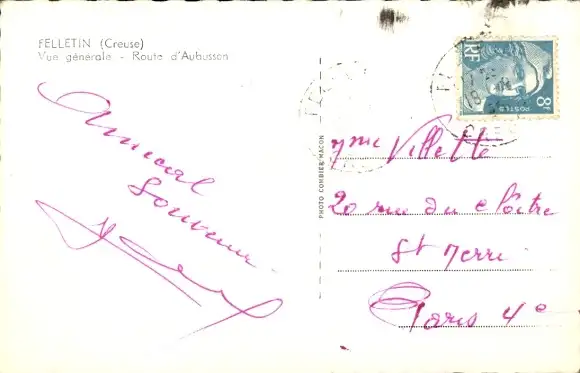 FELLETIN (Creuse)
Vue générale - Route d'Aubusson
Amical
Souvenir
PHOTO COMBIER MACON
RF
8F
POSTES
Mme Villette
20 rue du Cloître
St Merri
Paris 4e